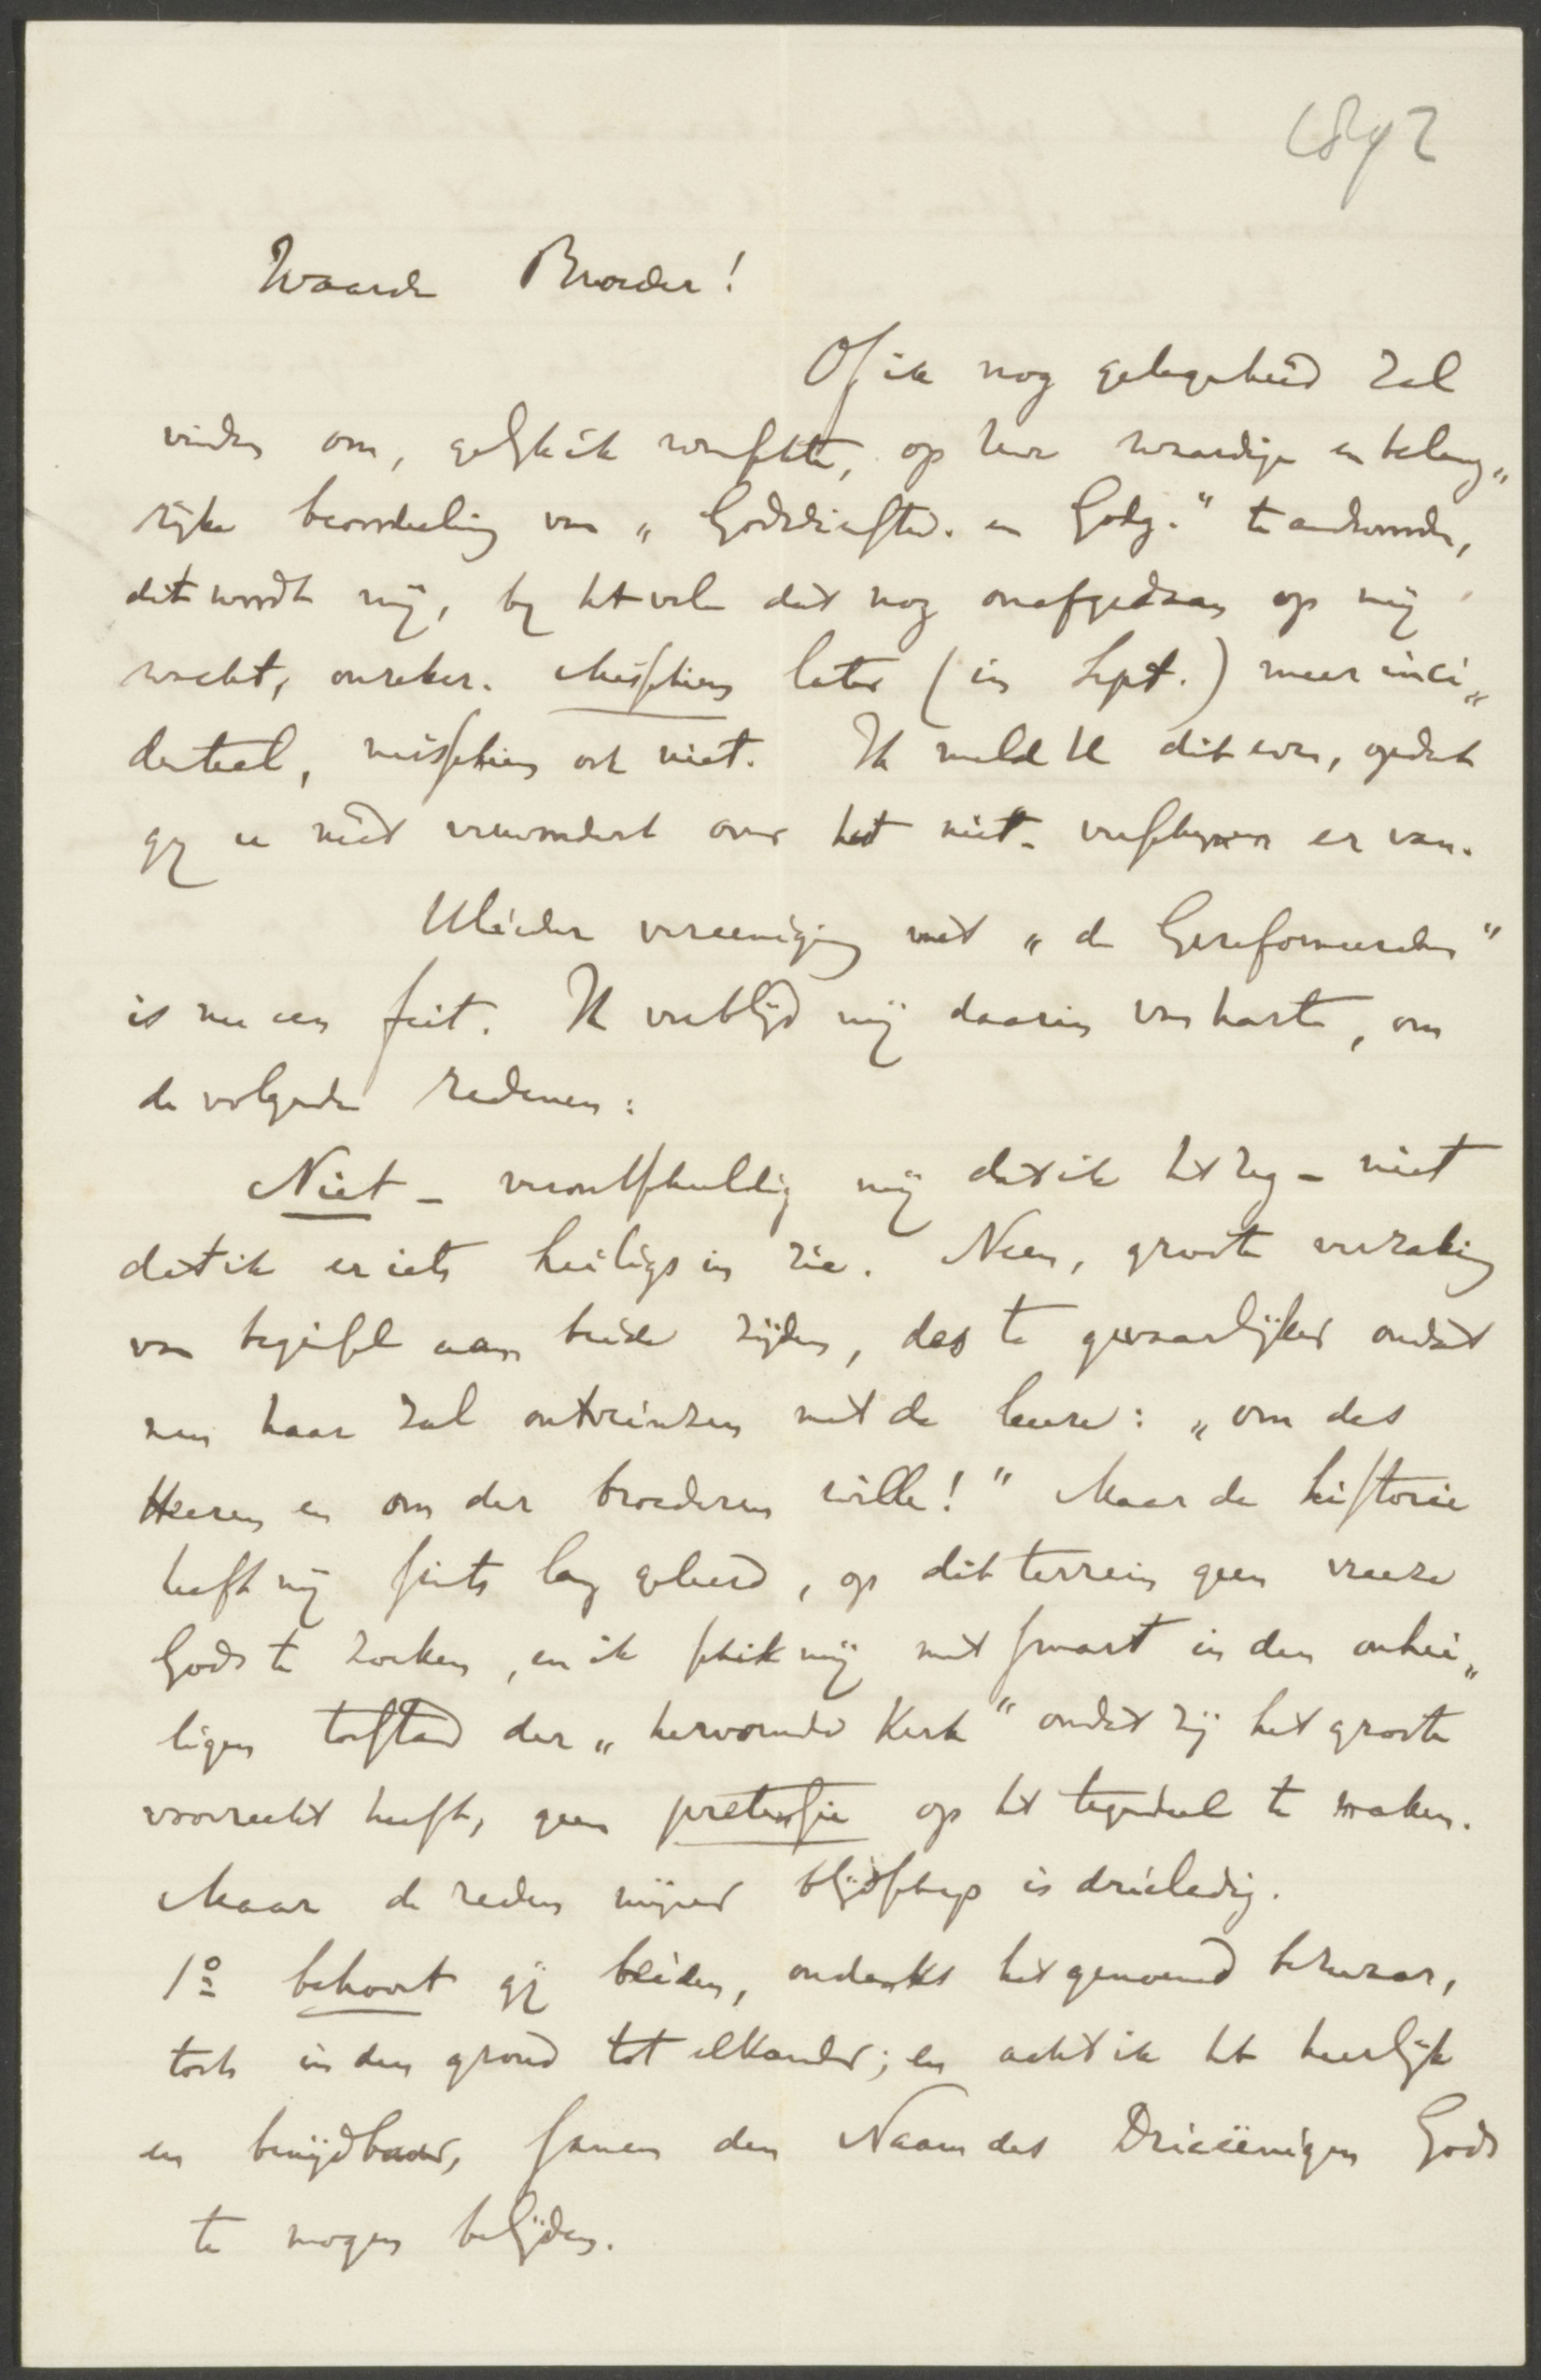 1892
Waarde Broeder!
Of ik nog gelegenheid zal
vinden om, gelijk ik wenschte, op Uwe waardige en belang„
rijke beoordeeling van „Godsdienstwet. en Godg.“ te antwoorden,
dit wordt mij, bij het vele dat nog onafgedaan op mij
wacht, onzeker. Misschien later (in Sept.) meer inci„
denteel, misschien ook niet. Ik meld U dit even, opdat
gij u niet verwondert over het niet-verschijnen er van.
Ulieder vereeniging met „de Gereformeerden“
is nu een feit. Ik verblijd mij daarin van harte, om
de volgende redenen:
Niet – verontschuldig mij dat ik het zeg – niet
dat ik er iets heiligs in zie. Neen, groote verzaking
van beginsel aan beide zijden, des te gevaarlijker omdat
men haar zal ontveinzen met de leuze: „om des
Heeren en om der broederen wille!“ Maar de historie
heeft mij sints lang geleerd, op dit terrein geen vreeze
Gods te zoeken, en ik schik mij met smart in den onhei„
ligen toestand der „hervormde Kerk“ omdat zij het groote
voorrecht heeft, geen pretensie op het tegendeel te maken.
Maar de reden mijner blijdschap is drieledig.
1º behoort gij beiden, ondanks het genoemd bezwaar,
toch in den grond tot elkander; en acht ik het heerlijk
en benijdbaar, samen den Naam des Drieëenigen Gods
te mogen belijden.